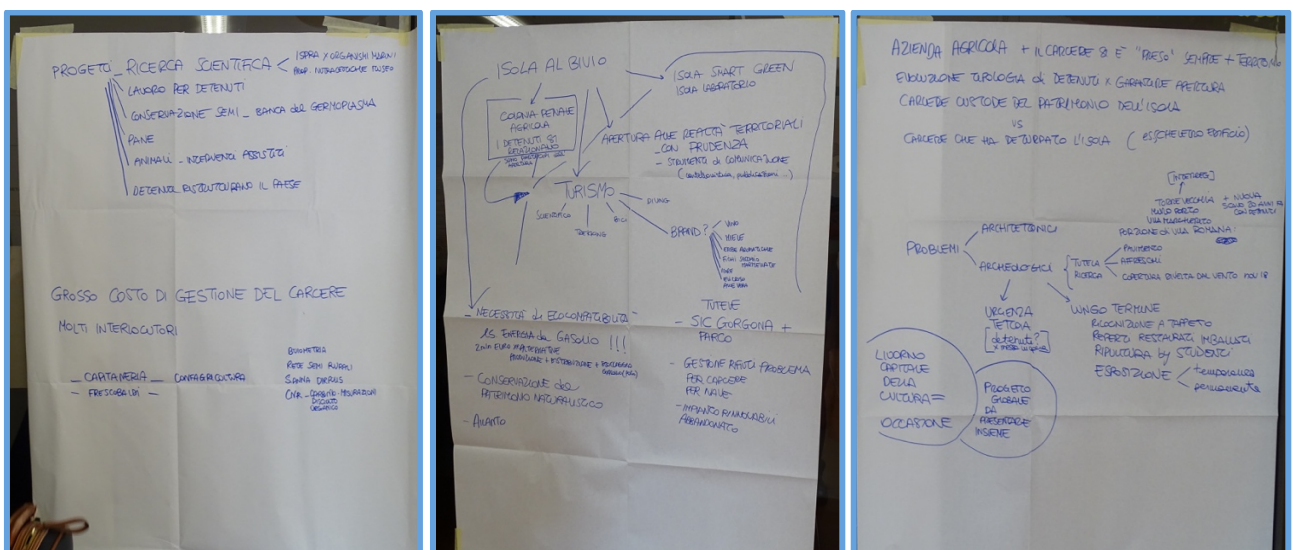 PROGETTI_RICERCA SCIENTIFICA
ISPRA X ORGANISMI MARINI
LAVORO PER DETENUTI
CONSERVAZIONE SEMI_ BANCA del GERMOPLASMA
PANE
ANIMALI - INTERVENTI ASSISTITI
DETENUTI RISTRUTTURANO IL PAESE
GROSSO COSTO DI GESTIONE DEL CARCERE
MOLTI INTERLOCUTORI
_ CAPITANERIA _ CONFAGRICOLTURA
_ FRESCOBALDI _
BIOMETRIA
RETE SEMI RURALI
CNR
ORGANICO
ISOLA AL BIVIO
ISOLA SMART GREEN
ISOLA LABORATORIO
COLONIA PENALE
AGRICOLA
I DETENUTI SI
RELAZIONANO
APERTURA ALLE REALTÀ TERRITORIALI
_ CON PRUDENZA
- STRUMENTI di COMUNICAZIONE
TURISMO
DIVING
SCIENTIFICO
TREKKING
BICI
BRAND?
VINO
MIELE
ERBE AROMATICHE
ALOE VERA
- NECESSITÀ di ECOCOMPATIBILITÀ
ES ENERGIA da GASOLIO !!!
- CONSERVAZIONE del
PATRIMONIO NATURALISTICO
- AILANTO
TUTELE
- SIC GORGONA +
PARCO
- GESTIONE RIFIUTI PROBLEMA
PER CARCERE
PER NAVE
- IMPIANTO RINNOVABILI
ABBANDONATO
AZIENDA AGRICOLA + IL CARCERE SI È "PRESO" SEMPRE + TERRITORIO
EVOLUZIONE TIPOLOGIA di DETENUTI X GARANTIRE APERTURA
CARCERE CUSTODE DEL PATRIMONIO DELL'ISOLA
VS
CARCERE CHE HA DETURPATO L'ISOLA ( es SCHELETRO EDIFICIO)
TORRE VECCHIA + NUOVA
VILLA MARGHERITA
PORZIONE di VILLA ROMANA
PROBLEMI
ARCHITETTONICI
ARCHEOLOGICI
TUTELA
RICERCA
PAVIMENTO
AFFRESCHI
COPERTURA DIVELTA DAL VENTO nov 18
URGENZA
TETTOIA
[detenuti?
LUNGO TERMINE
RICOGNIZIONE A TAPPETO
REPERTI RESTAURATI IMBALLATI
RIPULITURA by STUDENTI
ESPOSIZIONE
temporanea
permanente
LIVORNO
CAPITALE
DELLA
CULTURA =
OCCASIONE
PROGETTO
GLOBALE
DA
PRESENTARE
INSIEME